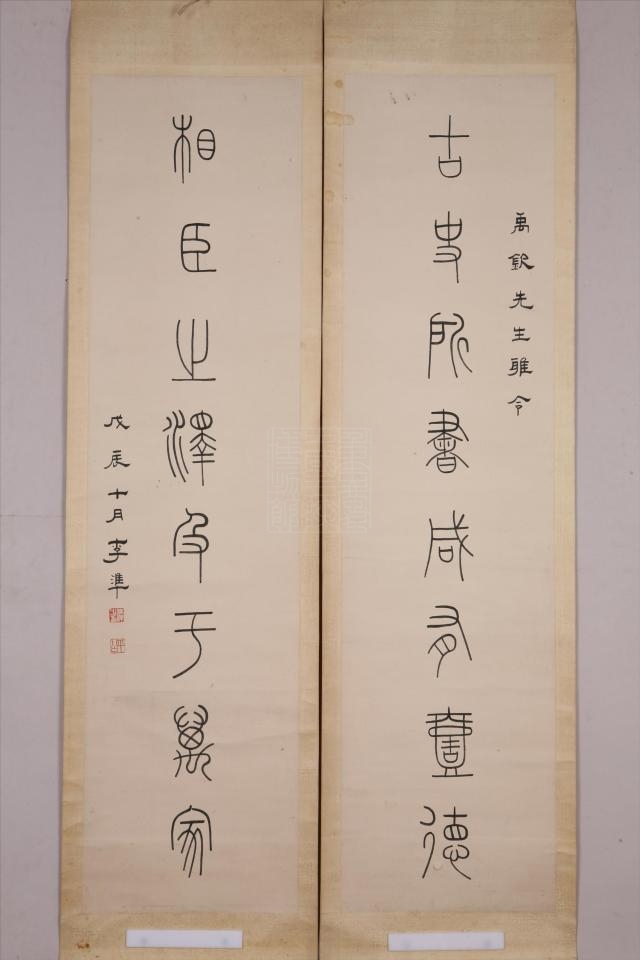 禹欽先生雅令
古史所書咸有壹德
相臣之澤及于萬家
戊辰十月李準